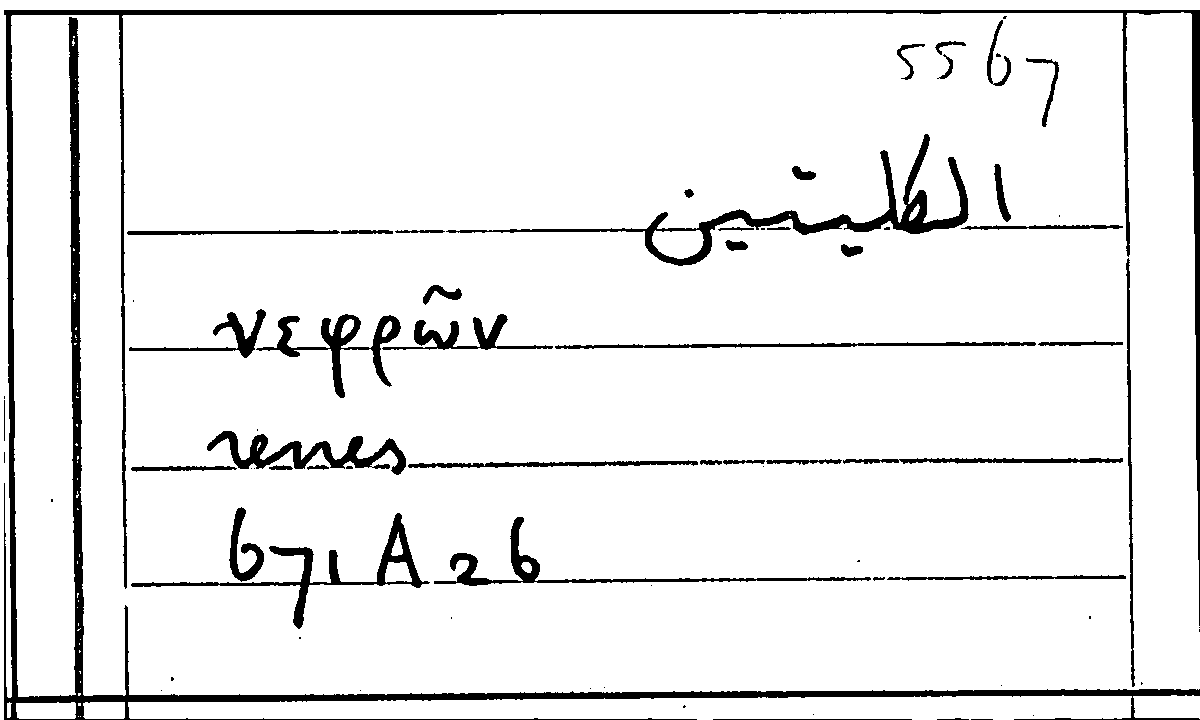 5567
الكليتين
νεφρῶν
renes
671 A 26